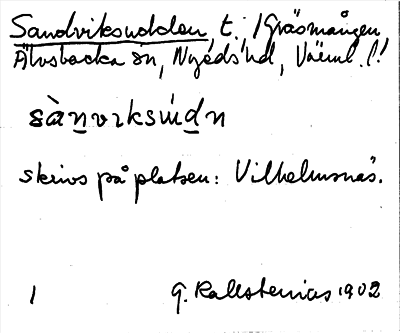 Sandviksudden, t. i Gräsmången,
Älvsbacka sn, Nyeds hd, Värml. l.
sàn̲vıksúd̲n
skrivs på platsen: Vilhelmsnäs.
1 G. Kallstenius 1902